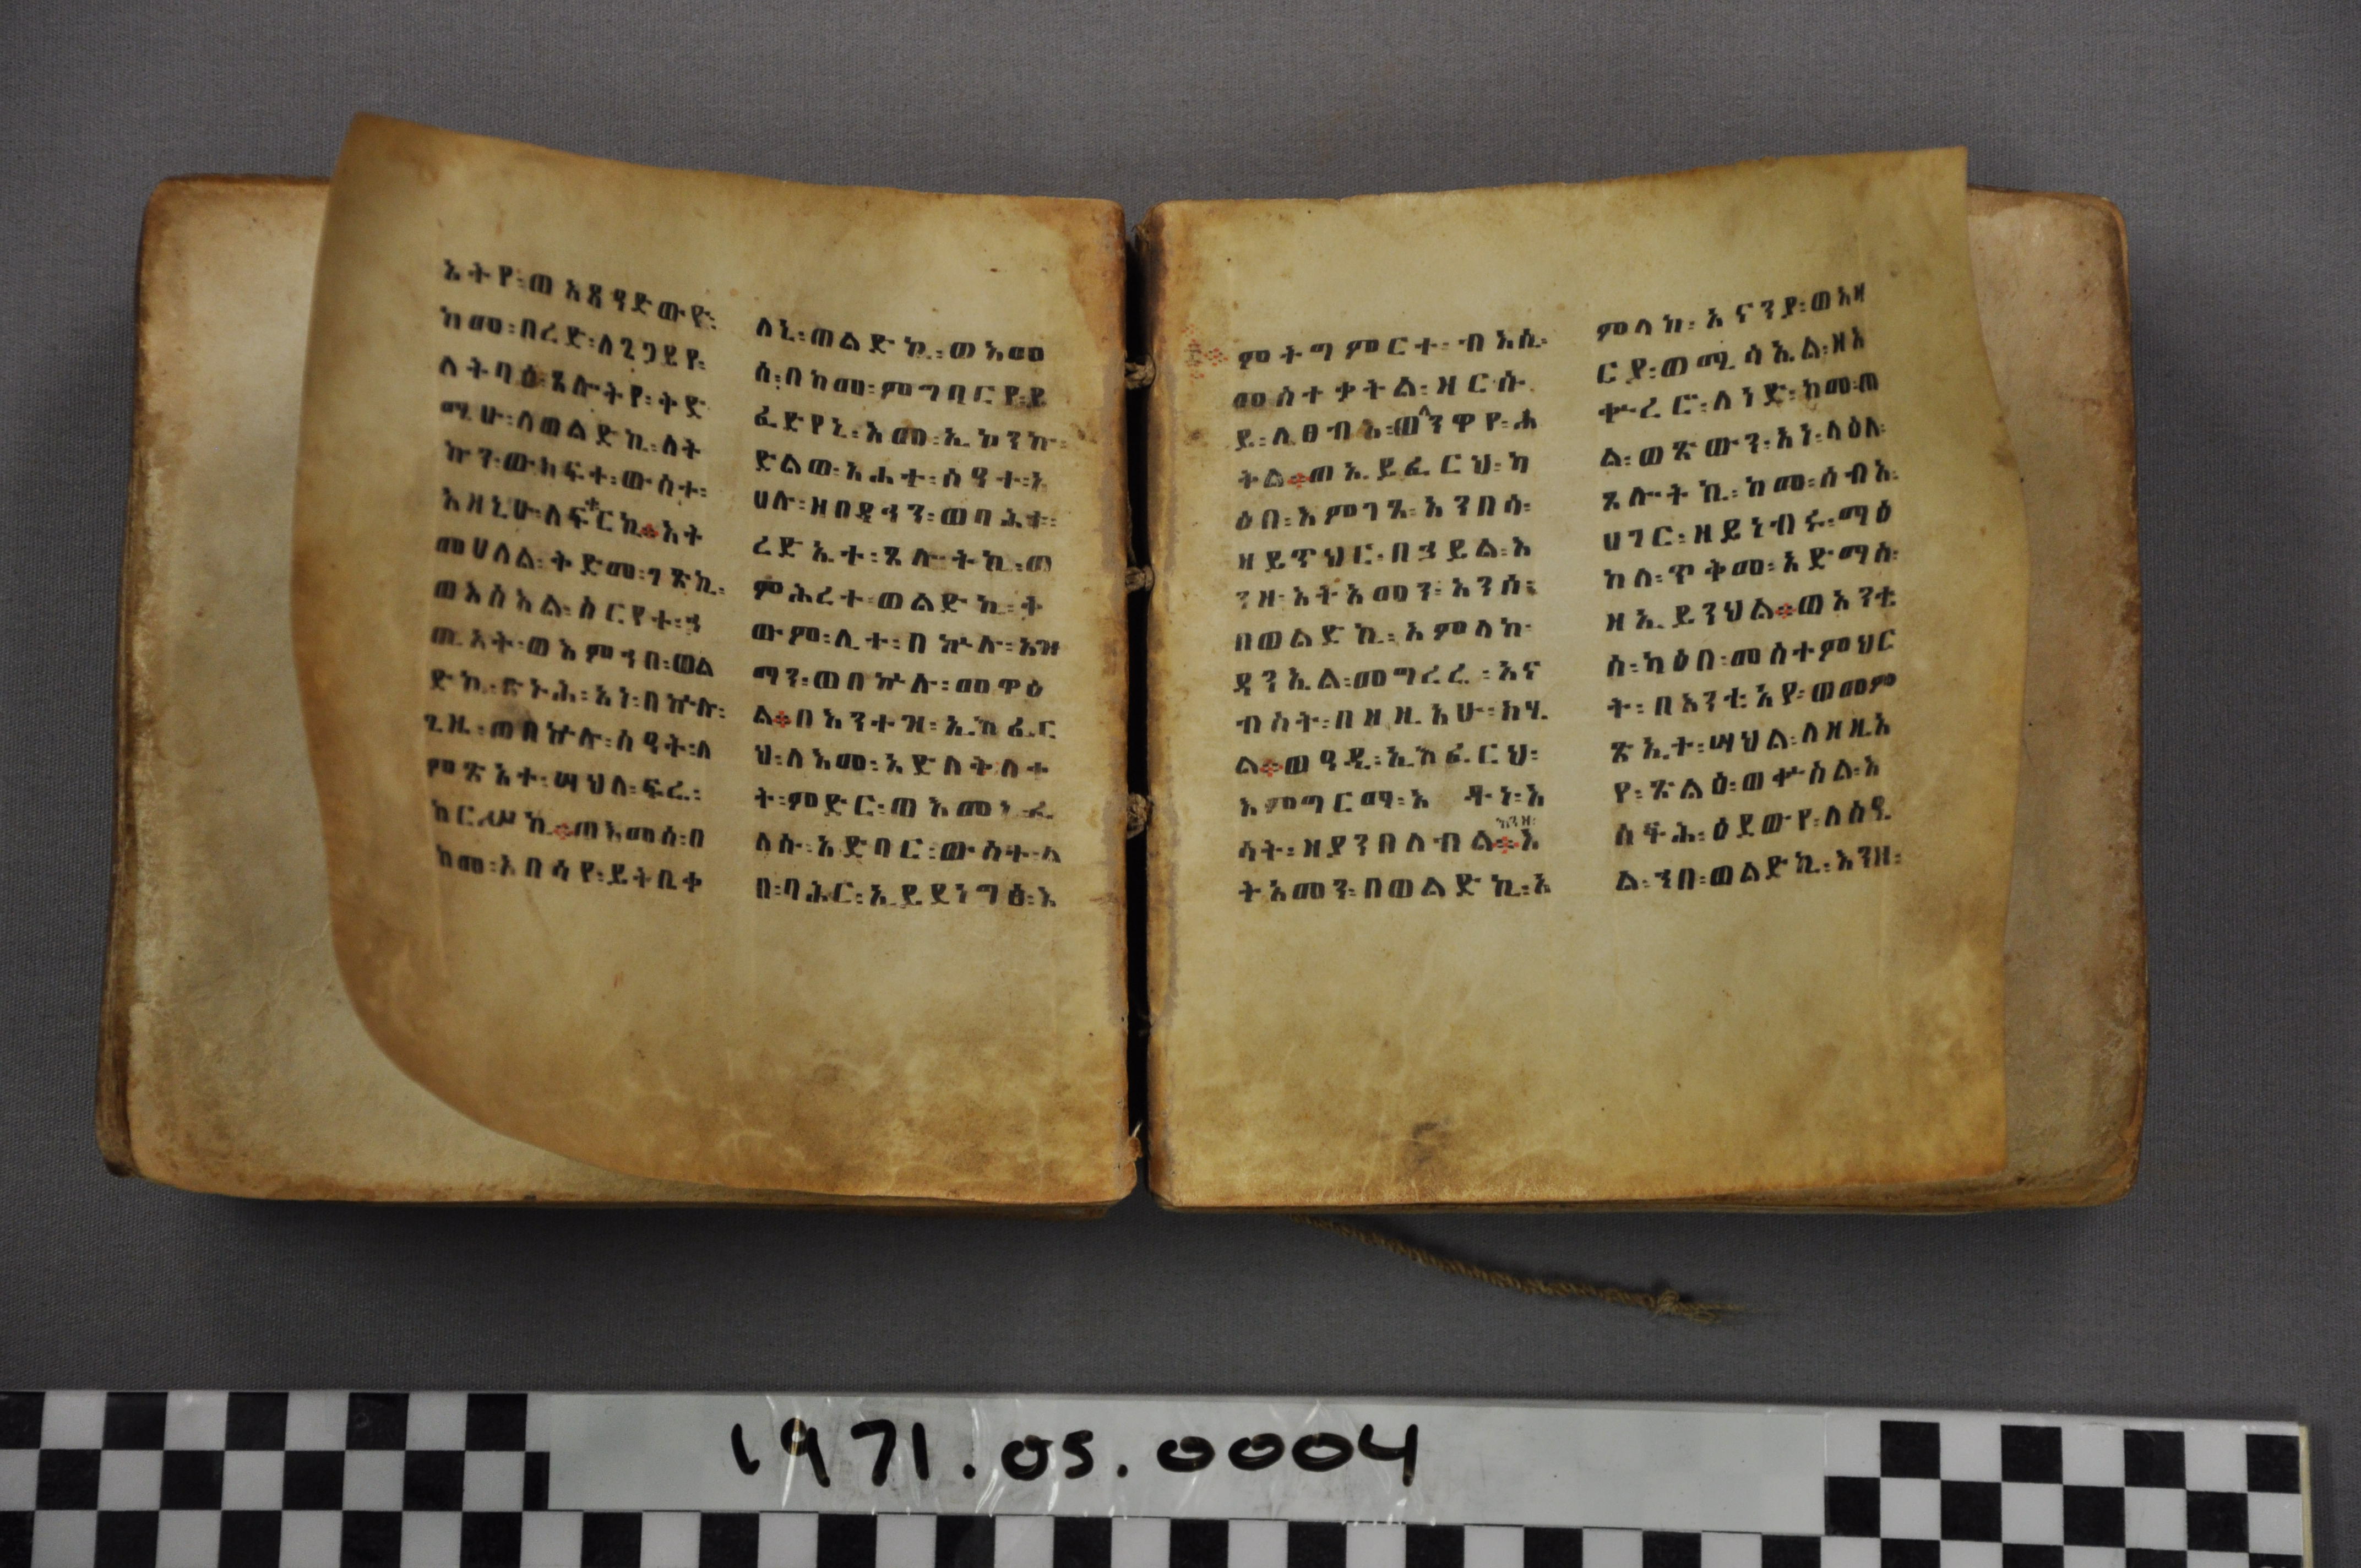 እትየ፡ወአጽዳድውየ፡
ከመ፡በረድ፡ለጌጋይየ፡
ለትባዕ፡ጸሎትየ፡ቅድ
ሜሁ፡ለወልድኪ፡ለት
ኩን፡ውክፍተ፡ውስተ፡
እዘኒሁ፡ለፍቁርኪ።እት
መሀለል፡ቅድመ፡ገጽኪ፡
ወእስእል፡ስርየተ፡ኃ
ጢአት፡ወእምኀበ፡ወል
ድኪ፡ጽኑሕ፡አነ፡በኵሉ፡
ጊዜ፡ወበኵሉ፡ሰዓት፡ለ
ምጽአተ፡ሣህለ፡ፍሬ፡
ከርሥኪ።ወእመሰ፡በ
ከመ፡አበሳየ፡ይትቤቀ
ለኒ፡ወልድኪ፡ወእመ
ሰ፡በከመ፡ምግባርየ፡ይ
ፈድየኒ፡እመ፡ኢኮንኩ፡
ድልወ፡አሐተ፡ሰዓተ፡አ
ሀሉ፡ዘበዳኅን፡ወባሕቱ፡
ረድኢተ፡ጸሎትኪ፡ወ
ምሕረተ፡ወልድኪ፡ት
ውም፡ሊተ፡በኵሉ፡አዝ
ማን፡ወበኵሉ፡መዋዕ
ል።በእንተዝ፡ኢኈፈር
ህ፡ለእመ፡አድለቅለቀ
ት፡ምድር፡ወእመኒ፡ፈ
ለሱ፡አድባር፡ውስተ፡ል
በ፡ባሕር፡ኢይደነግፅ፡እ
ምትግምርተ፡ብእሲ፡
መስተቃትል፡ዘርሱ
ይ፡ለፀብእ፡ወንዋየ፡ሐ
ቅል።ወኢይፈርህ፡ካ
ዕበ፡እምገጸ፡አንበሳ፡
ዘይጥህር፡በኃይል፡እ
ንዘ፡እትአመን፡አንሰ፡
በወልድኪ፡አምላከ፡
ዳንኤል፡መግረሬ፡አና
ብስት፡በዘዚአሁ፡ከሃ
ል።ወዓዲ፡ኢኈፈርህ፡
እምግርማ፡እ ዳተ፡እ
ሳት፡ዘያንበለብል።እ
እንዘ፡
ትአመን፡በወልድኪ፡አ
ምላከ፡አናንያ፡ወአዛ
ርያ፡ወሚሳኤል፡ዘአ
ቍረር፡ለነድ፡ከመ፡ጠ
ል፡ወጽውን፡አነ፡ላዕለ፡
ጸሎትኪ፡ከመ፡ሰብአ፡
ሀገር፡ዘይነብሩ፡ማዕ
ከለ፡ጥቅመ፡አድማስ፡
ዘኢይንህል።ወአንቲ
ሰ፡ካዕበ፡መስተምህር
ት፡በእንቲአየ፡ወመም
ጽኢተ፡ሣህል፡ለዘዚአ
የ፡ጽልዕ፡ወቍስል፡አ
ስፋሕ፡ዕደውየ፡ለስዒ
ል፡ኀበ፡ወልድኪ፡እንዘ፡
1971.05.0004